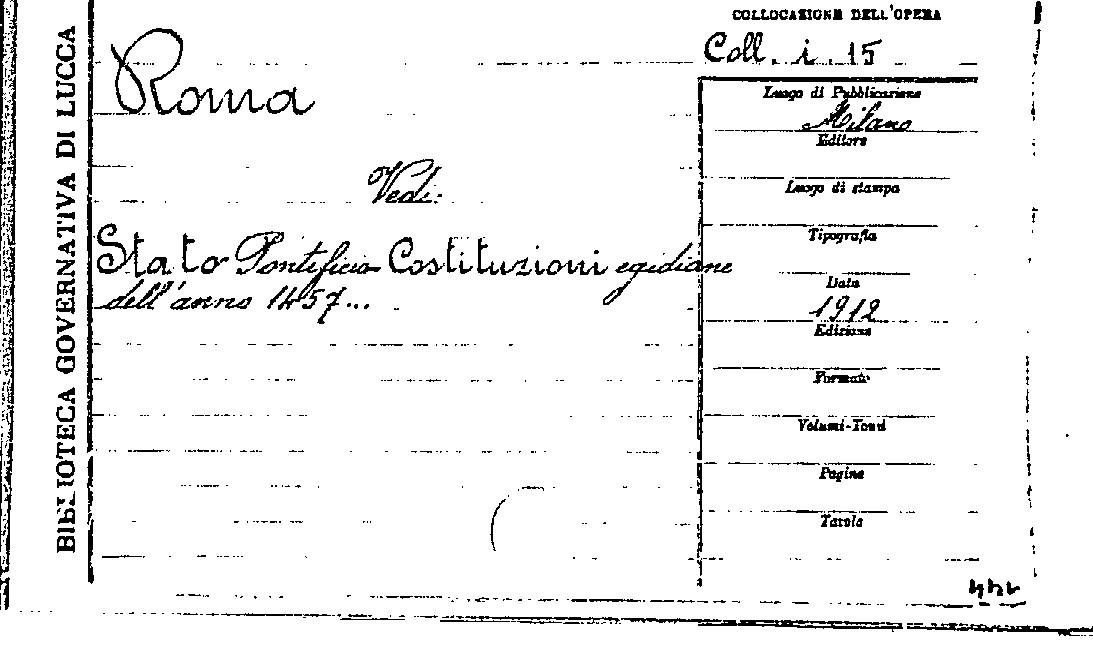 BIBLIOTECA GOVERNATIVA DI LUCCA
Roma
Vedi:
Stato Pontificio Costituzioni egidiane
dell'anno 1457...
COLLOCAZIONE DELL'OPERA
Coll. i. 15
Luogo di Pubblicazione
Milano
Editore
Luogo di stampa
Tipografia
Data
1912
Edizione
Formato
Volumi-Tomi
Pagine
Tavole